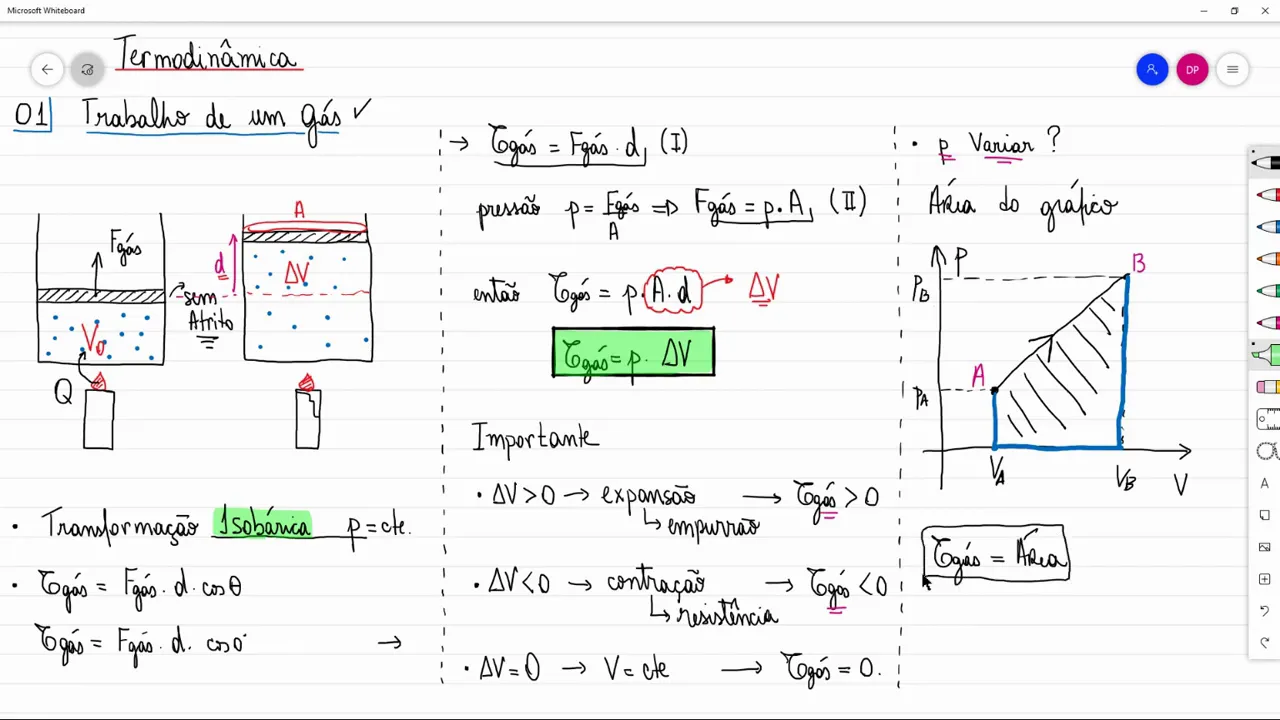 Microsoft Whiteboard
DP
Termodinâmica
01 Trabalho de um gás ✓
Fgás
V₀
Q
sem
Atrito
A
d
ΔV
• Transformação Isobárica p = cte.
• τgás = Fgás · d · cosθ
τgás = Fgás · d · cos0° →
→ τgás = Fgás · d (I)
pressão p = Fgás/A ⇒ Fgás = p · A (II)
então τgás = p · A · d → ΔV
τgás = p · ΔV
Importante
• ΔV > 0 → expansão → τgás > 0
↳ empurrão
• ΔV < 0 → contração → τgás < 0
↳ resistência
• ΔV = 0 → V = cte → τgás = 0.
• p Variar ?
Área do gráfico
P
B
PB
A
PA
VA
VB
V
τgás = Área
A